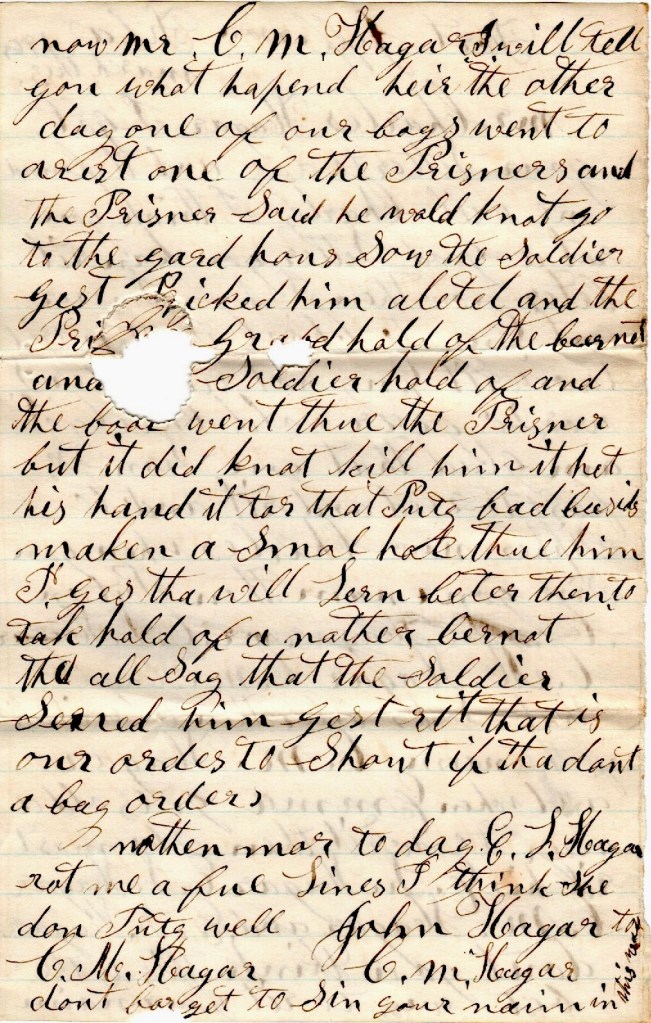 now mr. C. M. Hagar I will tell
you what hapend heir the other
day one of our boys went to
arest one of the Prisners and
the Prisner Said he wold knot go
to the gard hous Sow the Soldier
gest Pricked him a letel and the
Pri Grabd hold of the
and Soldier hold of and
the went thue the Prisner
but it did knot kill him it het
his hand it tor that Puty bad besids
maken a Smal hole thue him
I ges tha will Lern beter then to
tak hold of a nather bernot
the all Say that the Soldier
Served him gest rit that is
our ordes to Shout if tha dont
a bay orders
nothen mor to day C. L. Hagar
rot me a fue Lines I think She
don Puty well John Hagar to
C. M. Hagar C. M. Hagar
dont forget to Sin your naim in
this way